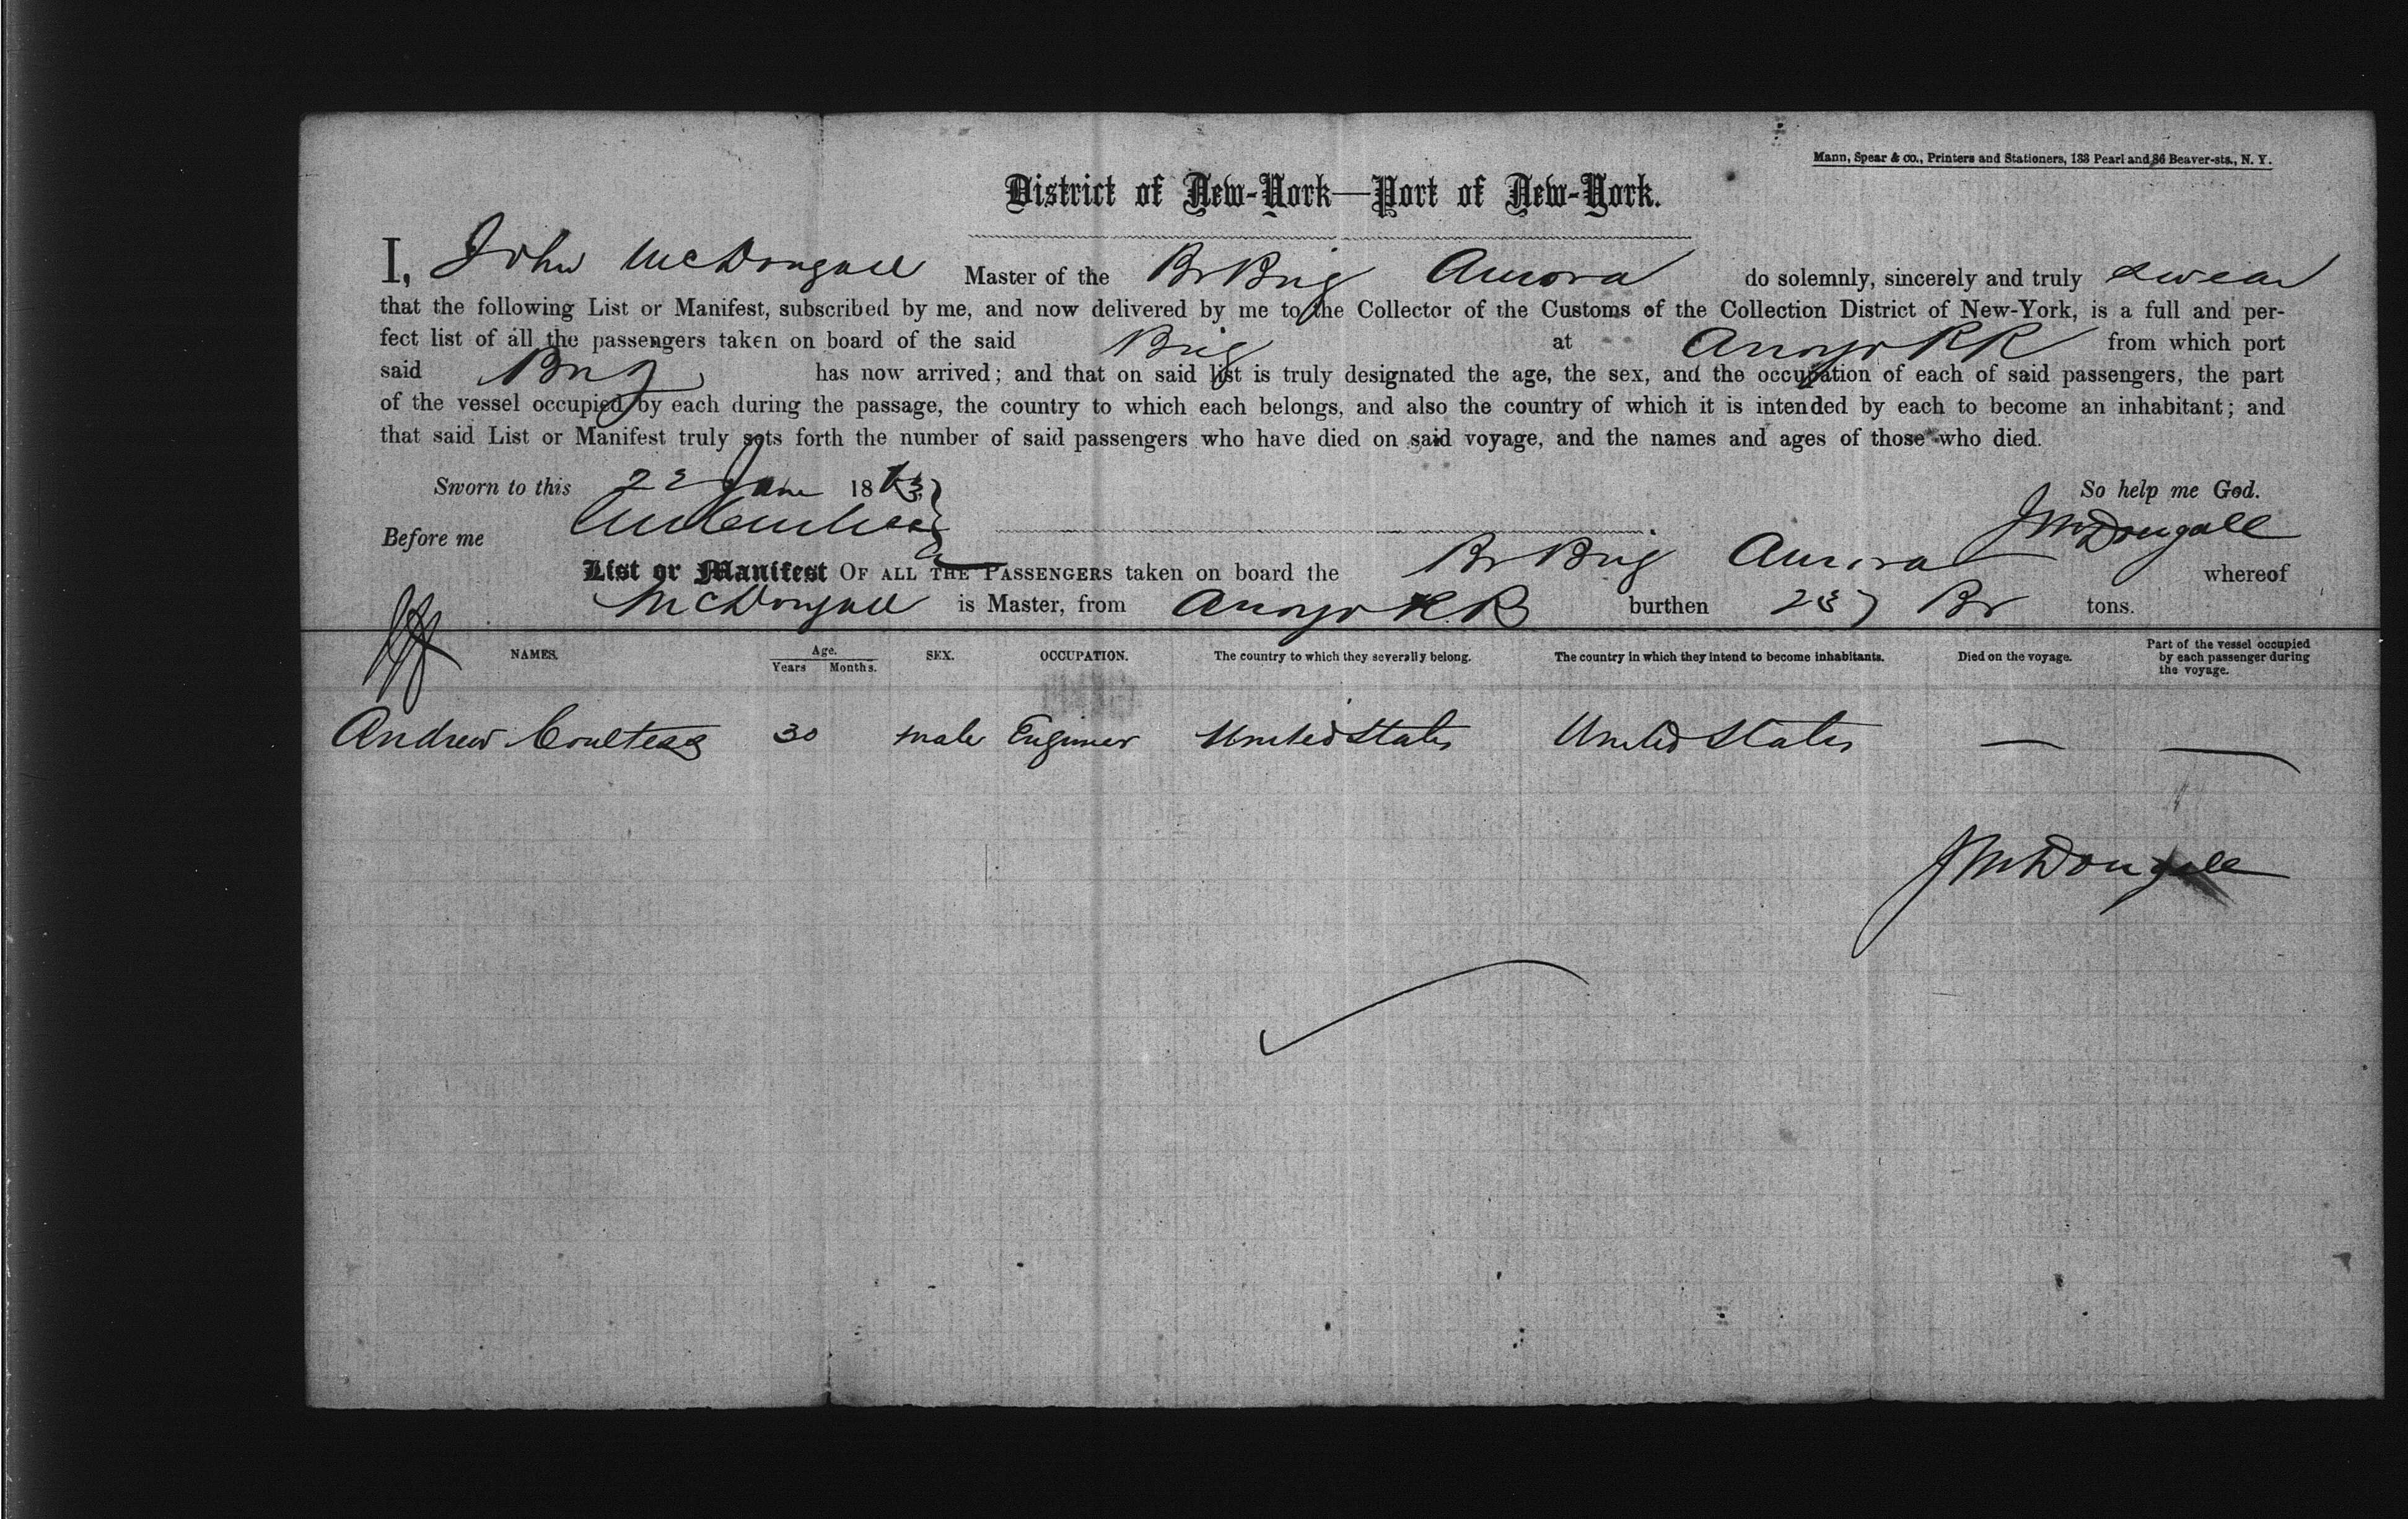 Mann, Spear & co., Printers and Stationers, 133 Pearl and 86 Beaver-sts., N. Y.
District of New-York—Port of New-York.
I, John McDougall Master of the Br Brig Aurora do solemnly, sincerely and truly swear
that the following List or Manifest, subscribed by me, and now delivered by me to the Collector of the Customs of the Collection District of New-York, is a full and per-
fect list of all the passengers taken on board of the said Brig at Arroyo P R from which port
said Brig has now arrived; and that on said list is truly designated the age, the sex, and the occupation of each of said passengers, the part
of the vessel occupied by each during the passage, the country to which each belongs, and also the country of which it is intended by each to become an inhabitant; and
that said List or Manifest truly sets forth the number of said passengers who have died on said voyage, and the names and ages of those who died.
Sworn to this 22 18 So help me God.
Before me J McDougall
List or Manifest OF ALL THE PASSENGERS taken on board the Br Brig Aurora whereof
McDougall is Master, from Arroyo P.R burthen 237 Br tons.
NAMES. Age. Years Months. SEX. OCCUPATION. The country to which they severally belong. The country in which they intend to become inhabitants. Died on the voyage. Part of the vessel occupied by each passenger during the voyage.
Andrew 30 male Engineer United States United States — —
J McDougall